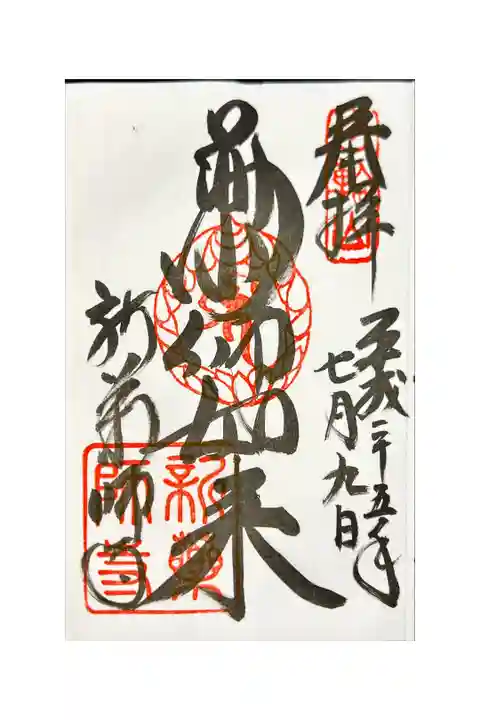 奉拝
平成二十五年
七月九日
薬師如来
新薬師寺
新薬
師寺